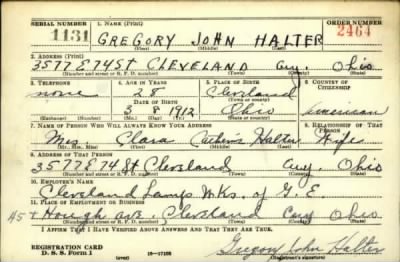 SERIAL NUMBER 1. NAME (Print) ORDER NUMBER
1131 GREGORY JOHN HALTER 2464
(First) (Middle) (Last)
2. ADDRESS (Print)
3577 E 74 ST CLEVELAND Cuy. Ohio
(Number and street or R. F. D. number) (Town) (County) (State)
3. TELEPHONE 4. AGE IN YEARS 5. PLACE OF BIRTH 6. COUNTRY OF CITIZENSHIP
none 28 Cleveland
DATE OF BIRTH (Town or county)
3 8 1912 Ohio American
(Exchange) (Number) (Mo.) (Day) (Yr.) (State or country)
7. NAME OF PERSON WHO WILL ALWAYS KNOW YOUR ADDRESS 8. RELATIONSHIP OF THAT PERSON
Mrs Clara Halter Wife
(Mr., Mrs., Miss) (First) (Middle) (Last)
9. ADDRESS OF THAT PERSON
3577 E 74 St Cleveland Cuy. Ohio
(Number and street or R. F. D. number) (Town) (County) (State)
10. EMPLOYER'S NAME
Cleveland Lamp Wks. of G. E.
11. PLACE OF EMPLOYMENT OR BUSINESS
45 & Hough ave. Cleveland Cuy Ohio
(Number and street or R. F. D. number) (Town) (County) (State)
I AFFIRM THAT I HAVE VERIFIED ABOVE ANSWERS AND THAT THEY ARE TRUE.
REGISTRATION CARD
D. S. S. Form 1 (over) 16-17105 Gregory John Halter
(Registrant's signature)